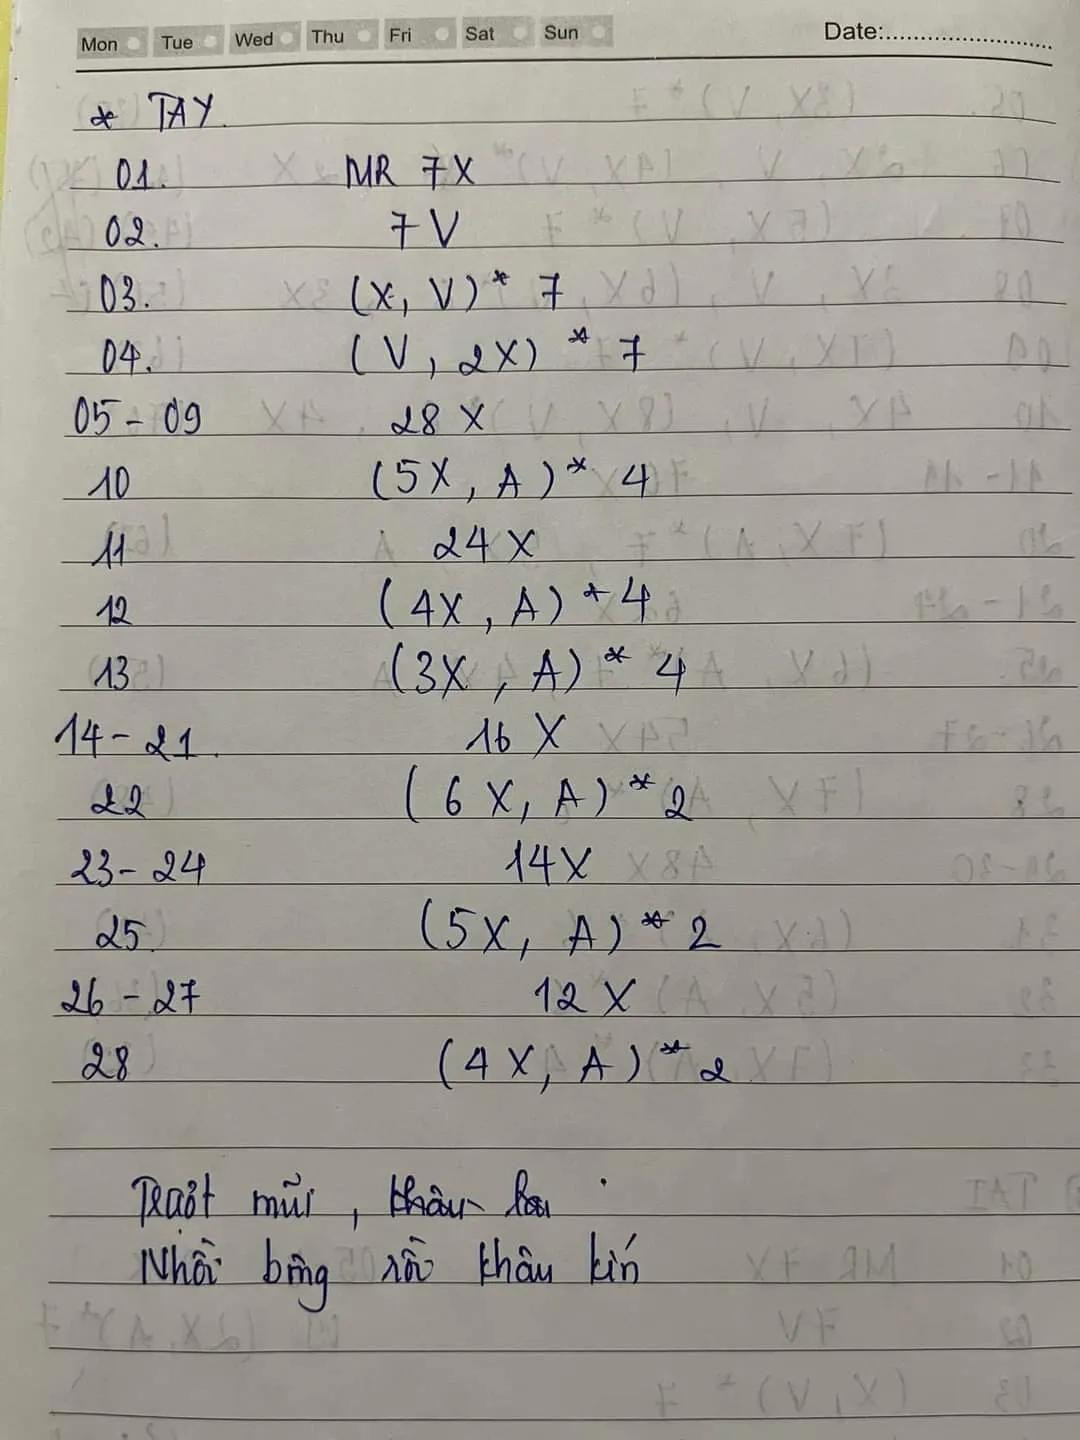 Mon Tue Wed Thu Fri Sat Sun Date:
* TAY.
01. MR 7X
02. 7V
03. (X, V) * 7
04. (V, 2X) * 7
05 - 09 28 X
10 (5X, A) * 4
11 24 X
12 (4X, A) * 4
13 (3X, A) * 4
14 - 21. 16 X
22 (6X, A) * 2
23 - 24 14X
25. (5X, A) * 2
26 - 27 12 X
28 (4X, A) * 2
mũi, khâu
Nhồi bông rồi khâu kín